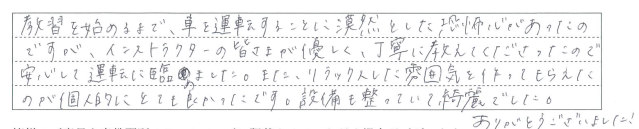 教習を始めるまで、車を運転することに漠然とした恐怖心があったの
ですが、インストラクターの皆さまが優しく、丁寧に教えてくださったので
安心して運転に臨めました。また、リラックスした雰囲気を作ってもらえた
のが個人的にとても良かったです。設備も整っていて綺麗でした。
ありがとうございました！